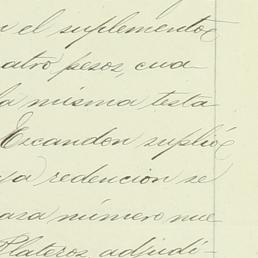 n el suplemento
atro pesos, cua
la misma testa
Escandon suplió
ya redencion se
asa número nue
Plateros, adjudi-